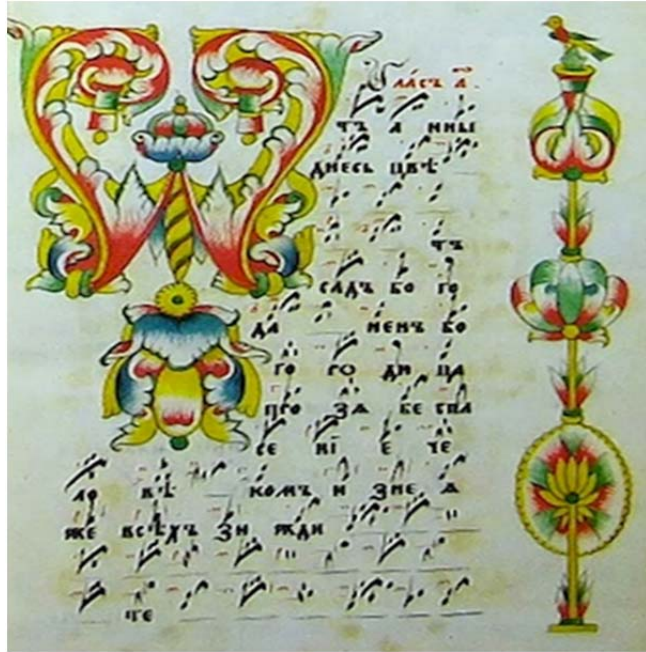 Гла́съ а҃.
тъ а нны
днесь цвѣ
тъ
садъ бо го
да ненъ бо
го ро ди ца
про зѧ бе спа
се нї е че
ло вѣ комъ и зне ѧ
же всѣхъ зи жди
те